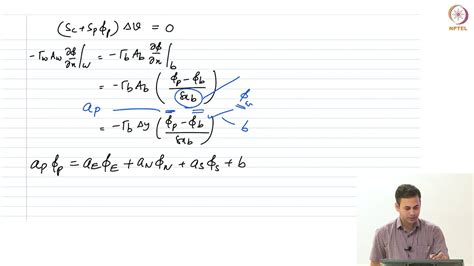 NPTEL
(S_c + S_p φ_p) Δ∀ = 0
-Γ_w A_w ∂φ/∂x|_w = -Γ_b A_b ∂φ/∂x|_b
= -Γ_b A_b ( (φ_p - φ_b) / δx_b )
a_p
= -Γ_b Δy ( (φ_p - φ_b) / δx_b )
b
a_p φ_p = a_E φ_E + a_N φ_N + a_S φ_S + b